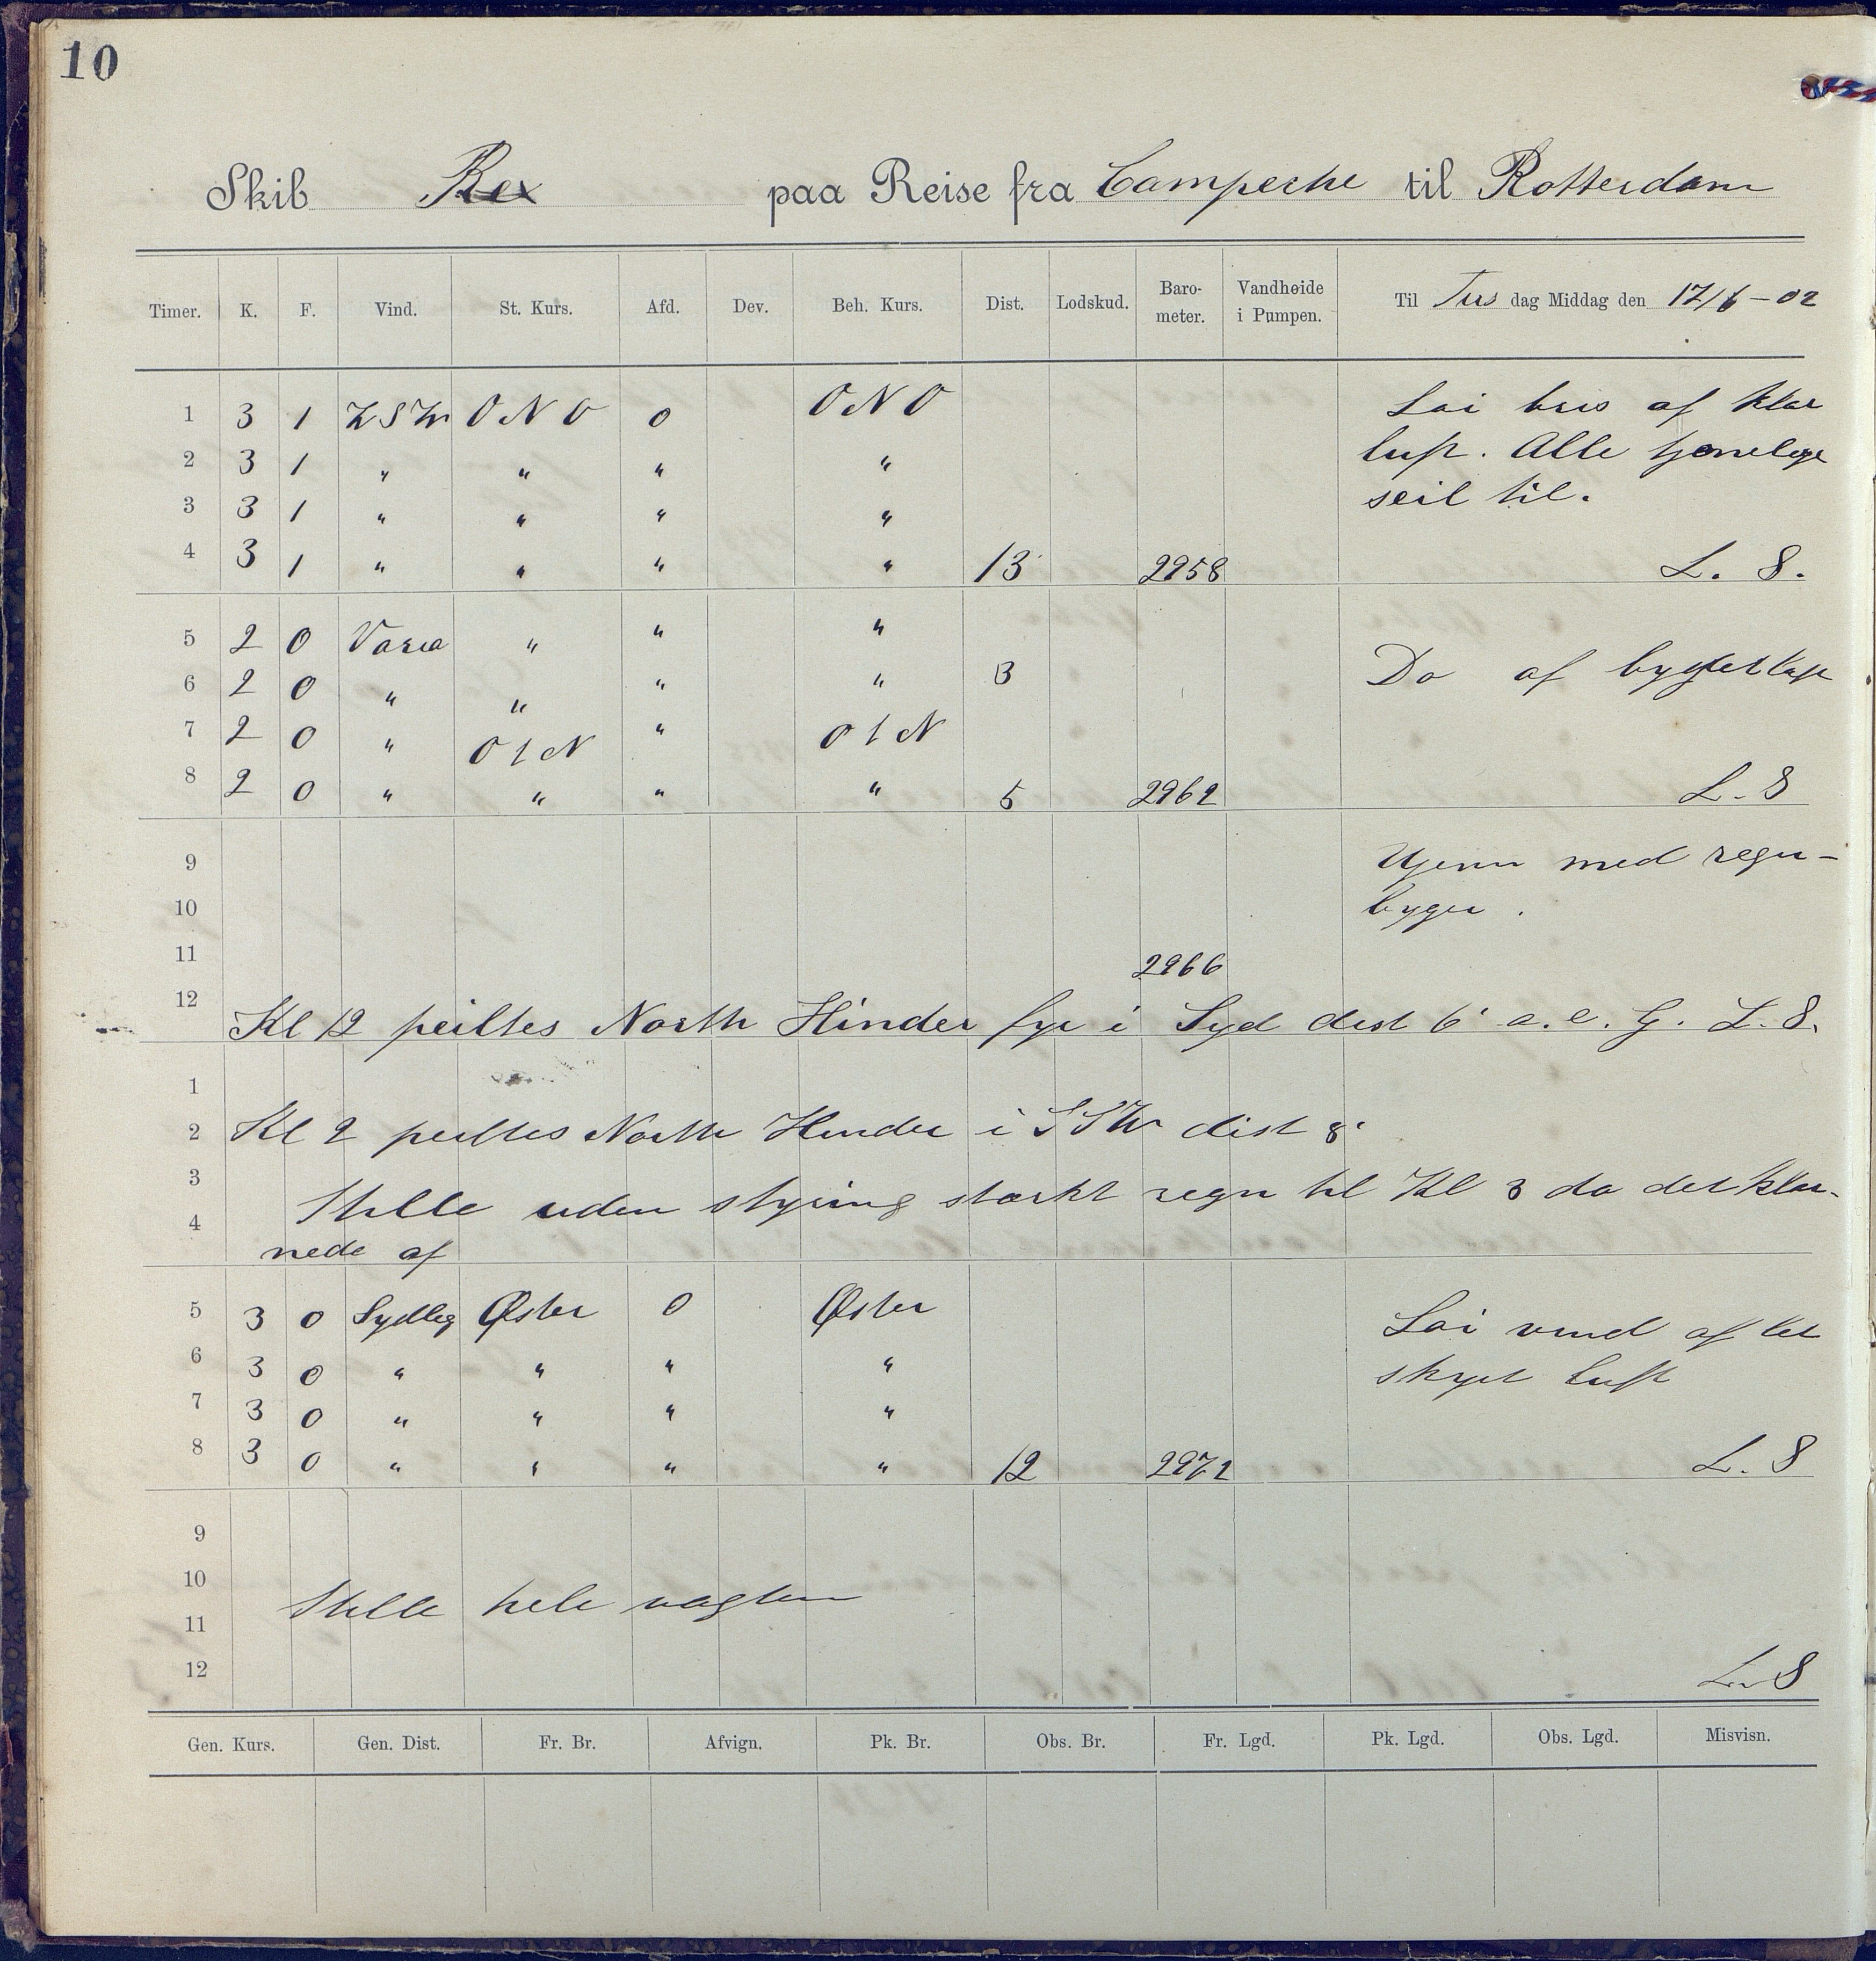 10
Skib Rex paa Reise fra Campeche til Rotterdam
Timer. K. F. Vind. St. Kurs. Afd. Dev. Beh. Kurs. Dist. Lodskud. Baro-meter. Vandhøide i Pumpen. Til Tirs dag Middag den 17/6-02
1 3 1 WSW ONO 0 ONO Lai bris af klar
2 3 1 " " " " luft. Alle tjenelige
3 3 1 " " " " seil til.
4 3 1 " " " " 13 2958 L. S.
5 2 0 Varia " " "
6 2 0 " " " " 3 Do af byget luft
7 2 0 " O t N " O t N
8 2 0 " " " " 5 2962 L. S
9 Ujenn med regn-
10 byger.
11 2966
12 Kl 12 peiltes North Hinder fyr i Syd dist 6' a. e. G. L. S.
1
2 Kl 2 peiltes North Hinder i SSW dist 8'
3 Stille uden styring stærkt regn til Kl 3 da det klar-
4 nede af
5 3 0 Sydlig Øster 0 Øster Lai vind af let
6 3 0 " " " " skyet luft
7 3 0 " " " "
8 3 0 " " " " 12 2972 L. S
9
10 Stille hele vagten
11
12 L. S
Gen. Kurs. Gen. Dist. Fr. Br. Afvign. Pk. Br. Obs. Br. Fr. Lgd. Pk. Lgd. Obs. Lgd. Misvisn.